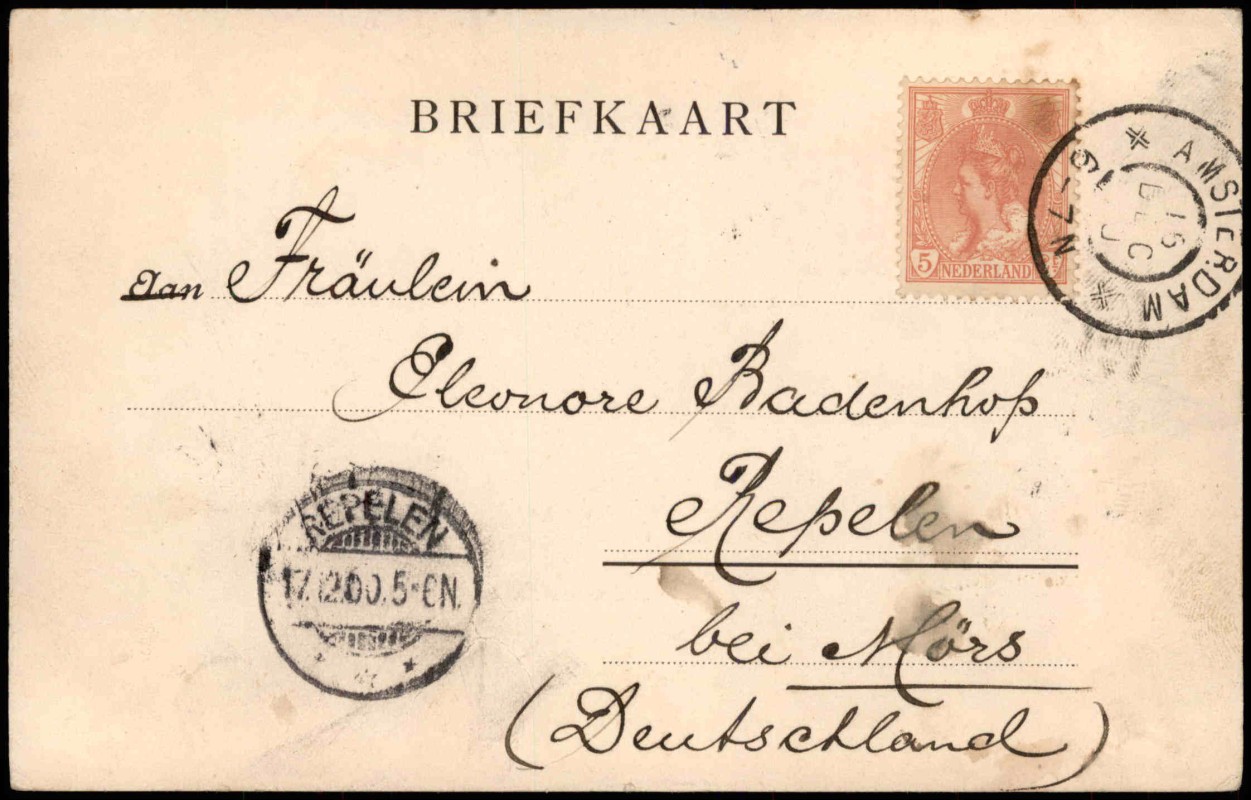 BRIEFKAART
5 NEDERLAND
AMSTERDAM
16 DEC
6-7N
Aan Fräulein
Eleonore Badenhop
Repelen
bei Mörs
(Deutschland)
REPELEN
17.12.00. 5-6N.